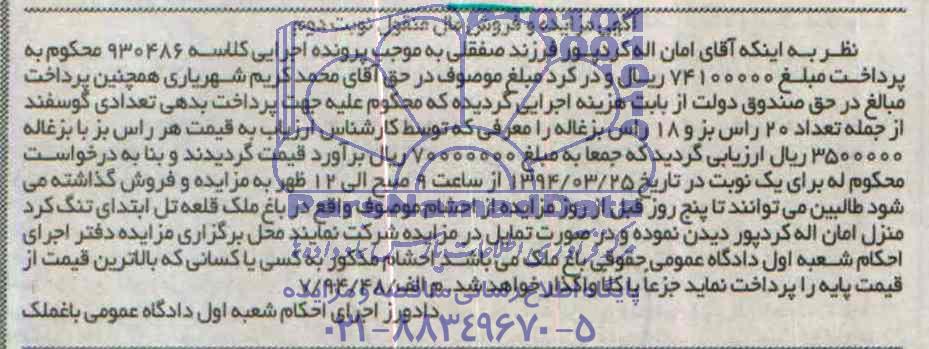 آگهی مزایده و فروش مال منقول نوبت دوم
نظر به اینکه آقای امان اله کردپور فرزند صفقلی به موجب پرونده اجرایی کلاسه ۹۳۰۴۸۶ محکوم به
پرداخت مبلغ ۷۴۱۰۰۰۰۰ ریال و در کرد مبلغ موصوف در حق آقای محمد کریم شهریاری همچنین پرداخت
مبالغ در حق صندوق دولت از بابت هزینه اجرایی گردیده که محکوم علیه جهت پرداخت بدهی تعدادی گوسفند
از جمله تعداد ۲۰ راس بز و ۱۸ راس بزغاله را معرفی که توسط کارشناس ارزیاب به قیمت هر راس بز با بزغاله
۳۵۰۰۰۰۰ ریال ارزیابی گردید که جمعا به مبلغ ۷۰۰۰۰۰۰۰ ریال برآورد قیمت گردیدند و بنا به درخواست
محکوم له برای یک نوبت در تاریخ ۱۳۹۴/۰۳/۲۵ از ساعت ۹ صبح الی ۱۲ ظهر به مزایده و فروش گذاشته می
شود طالبین می توانند تا پنج روز قبل از روز مزایده از احشام موصوف واقع در باغ ملک قلعه تل ابتدای تنگ کرد
منزل امان اله کردپور دیدن نموده و در صورت تمایل در مزایده شرکت نمایند محل برگزاری مزایده دفتر اجرای
احکام شعبه اول دادگاه عمومی حقوقی باغ ملک می باشند احشام مذکور به کسی یا کسانی که بالاترین قیمت از
قیمت پایه را پرداخت نماید جزعا یا کلا واگذار خواهد شد م الف ۷/۹۴/۴۸
دادورز اجرای احکام شعبه اول دادگاه عمومی باغملک
پایگاه اطلاع رسانی مناقصه و مزایده
۰۲۱-۸۸۳۴۹۶۷۰-۵